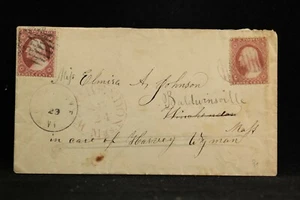 Miss Elmira A. Johnson
Baldwinsville
Winchendon
Mass
in care of Harvey Wyman
23